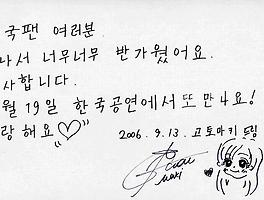 국팬 여러분.
나서 너무너무 반가웠어요.
사합니다.
월 19일 한국공연에서 또 만나요!
랑해요
2006. 9. 13. 고토마키 드림